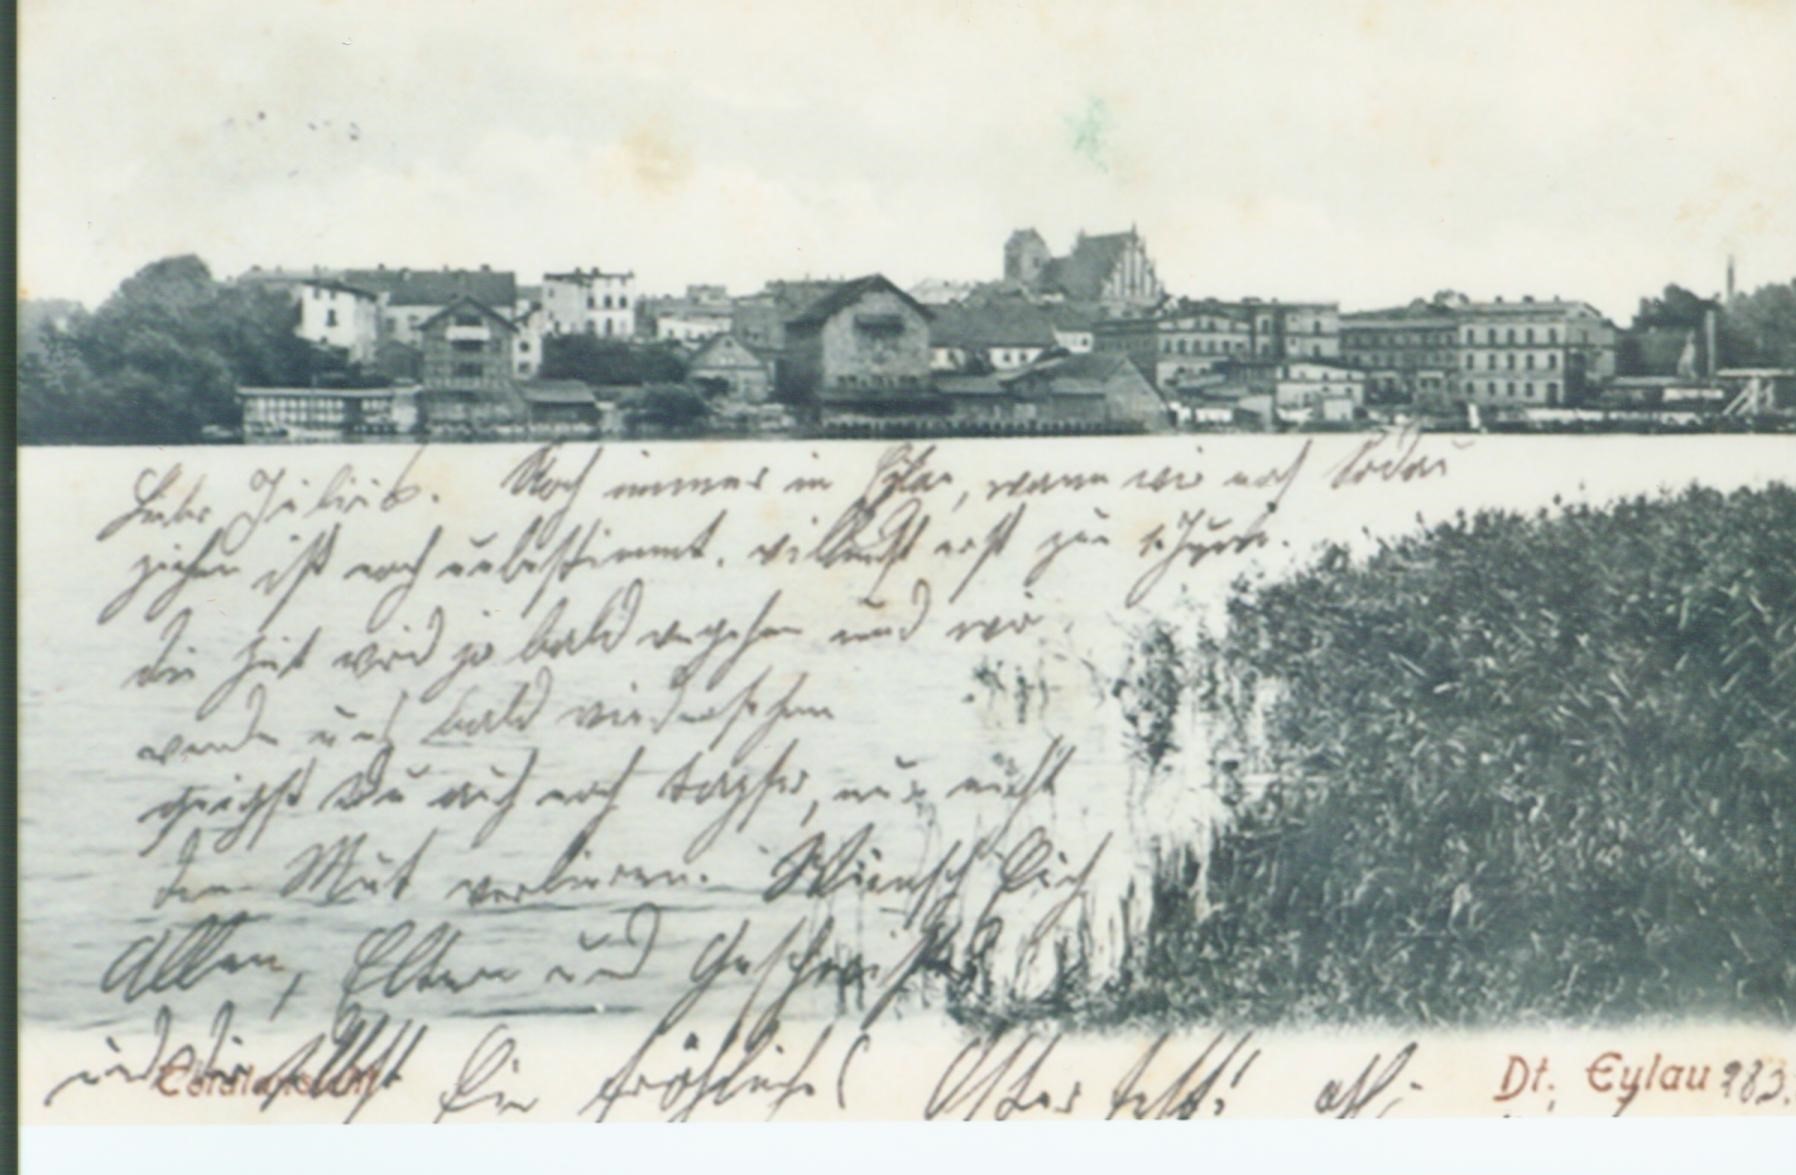 Liebe        . Noch immer in Eylau, wann wir nach Soldau
ziehen ist noch unbestimmt. villeicht erst zum
die Zeit wird ja bald vergehen und wir
werden uns bald wiedersehen
        Du auch noch tapfer, nur nicht
den Mut verlieren. Wünsch Euch
Allen, Eltern und Geschwister
und Dir selbst ein fröhliches Osterfest!
Totalansicht
Dt. Eylau 983.